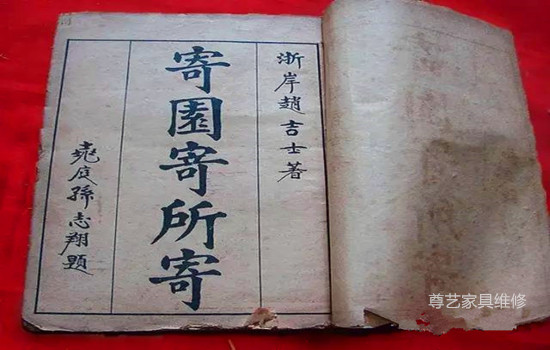 浙岸趙吉士著
寄園寄所寄
堯庭孫志翔題
尊艺家具维修